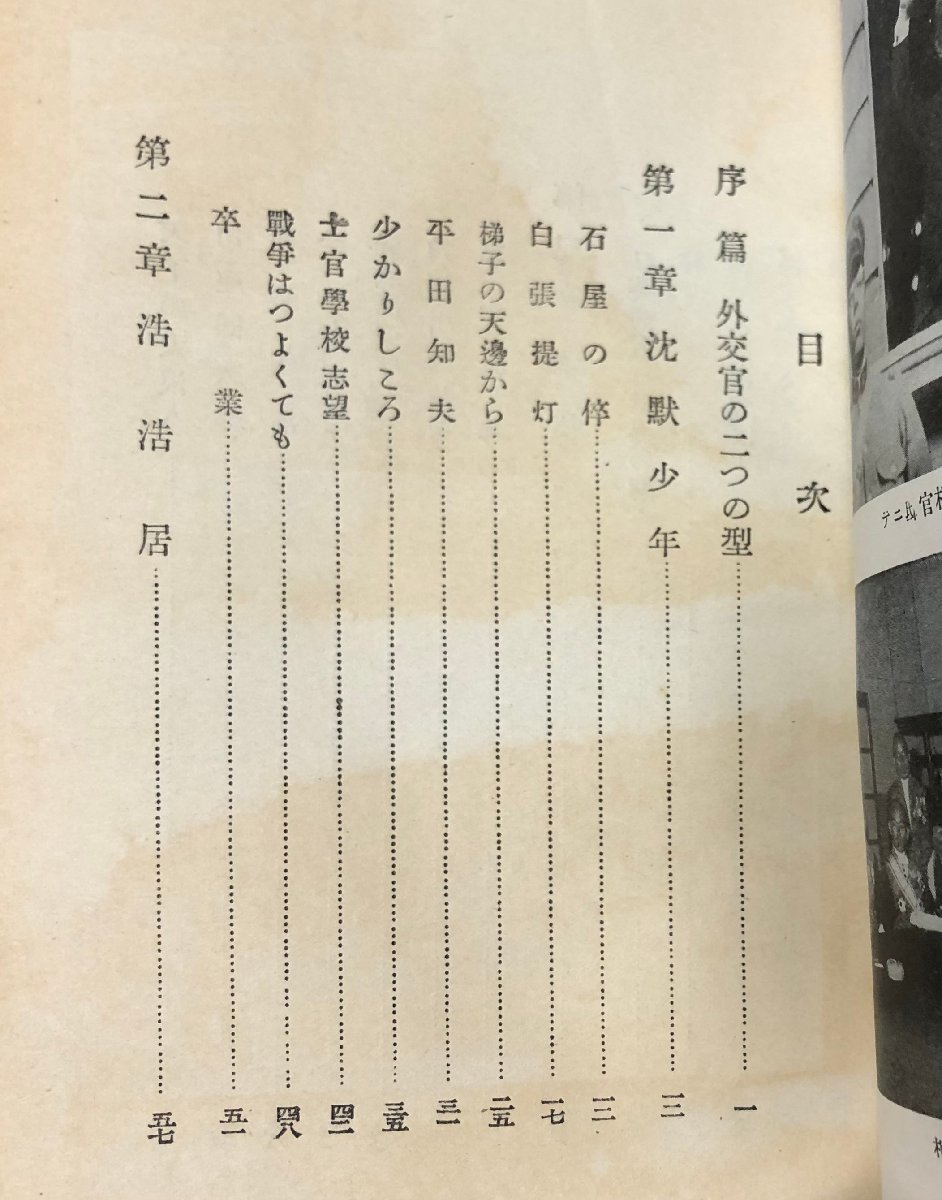 目次
序篇 外交官の二つの型……一
第一章 沈默少年……一二
石屋の倅……一二
白張提灯……一七
梯子の天邊から……二五
平田知夫……三一
少かりしころ……三五
士官學校志望……四二
戰爭はつよくても……四八
卒業……五一
第二章 浩浩居……五七
官邸ニテ